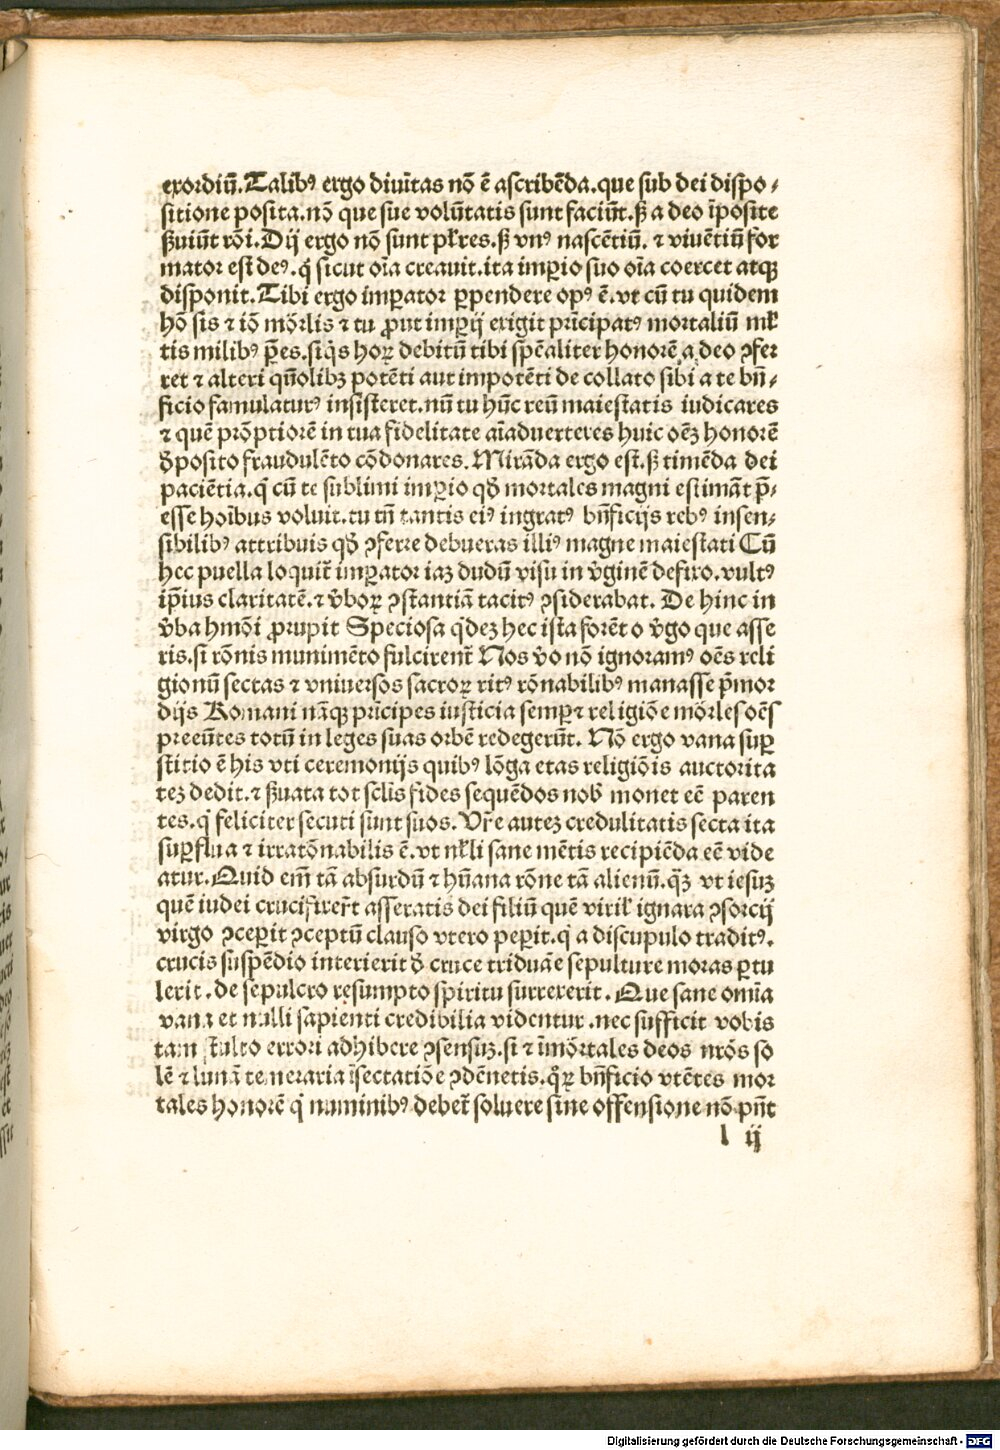 exordiū. Talibꝰ ergo diuītas nō ē ascribēda. que sub dei dispo⸗
sitione posita. nō que sue volūtatis sunt faciūt. ẜ a deo īposite
ẜuiūt rōi. Dij ergo nō sunt płres. ẜ vnꝰ nascētiū. ⁊ viuētiū for
mator est deꝰ. q̇ sicut oīa creauit. ita imꝑio suo oīa coercet atqꝫ
disponit. Tibi ergo imꝑator ꝑpendere opꝰ ē. vt cū tu quidem
hō sis ⁊ iō mōrlis ⁊ tu ꝓut imꝑij exigit prīcipatꝰ mortaliū mł
tis milibꝰ p̄es. siq̇s hoꝝ debitū tibi spēaliter honorē a deo ꝯfer
ret ⁊ alteri qūolibꝫ potēti aut impotēti de collato sibi a te bn̄⸗
ficio famulaturꝰ insisteret. nū tu hūc reū maiestatis iudicares
⁊ quē prōptiorē in tua fidelitate aīaduerteres huic oēꝫ honorē
ꝓposito fraudulēto cōdonares. Mirāda ergo est. ẜ timēda dei
paciētia. q̇ cū te sublimi imꝑio qđ mortales magni estimāt p̄⸗
esse hoībus voluit. tu tn̄ tantis eiꝰ ingratꝰ bn̄ficijs rebꝰ insen⸗
sibilibꝰ attribuis qđ ꝯferre debueras illiꝰ magne maiestati Cū
hec puella loquit̄ imꝑator iaꝫ dudū visu in v̇ginē defixo. vultꝰ
ip̄ius claritatē. ⁊ v̇boꝝ ꝯstantiā tacitꝰ ꝯsiderabat. De hinc in
v̇ba hmōi ꝓrupit Speciosa q̇deꝫ hec ista forēt o v̇go que asse
ris. si rōnis munimēto fulcirent̄ Nos v̇o nō ignoramꝰ oēs reli
gionū sectas ⁊ vniuersos sacroꝝ ritꝰ rōnabilibꝰ manasse p̄mor
dijs Romani nāqꝫ prīcipes iusticia semꝑ ⁊ religiōe mōrles oēs
preeūtes totū in leges suas orbē redegerūt. Nō ergo vana suꝑ
stitio ē his vti ceremonijs quibꝰ lōga etas religiōis auctorita
teꝫ dedit. ⁊ ẜuata tot sclis fides sequēdos nob̄ monet eē paren
tes. q̇ feliciter secuti sunt suos. Vr̄e auteꝫ credulitatis secta ita
suꝑflua ⁊ irratōnabilis ē. vt nłli sane mētis recipiēda eē vide
atur. Quid em̄ tā absurdū ⁊ hūana rōne tā alienū. q̇ꝫ vt iesuꝫ
quē iudei crucifixer̄t asseratis dei filiū quē virił ignara ꝯsorcij
virgo ꝯceꝑit ꝯceptū clauso vtero peꝑit. q̇ a discupulo traditꝰ.
crucis suspēdio interierit ꝓ cruce triduāe sepulture moras ꝑtu
lerit. de sepulcro resumpto spiritu surrexerit. Que sane omīa
vana et nulli sapienti credibilia videntur. nec sufficit vobis
tam stulto errori adhibere ꝯsensuꝫ. si ⁊ īmōrtales deos nrōs so
lē ⁊ lunā temeraria īsectatiōe ꝯdēnetis. q̊ꝝ bn̄ficio vtētes mor
tales honorē q̇ numinibꝰ debet̄ soluere sine offensione nō pn̄t
l ij
Digitalisierung gefördert durch die Deutsche Forschungsgemeinschaft - DFG